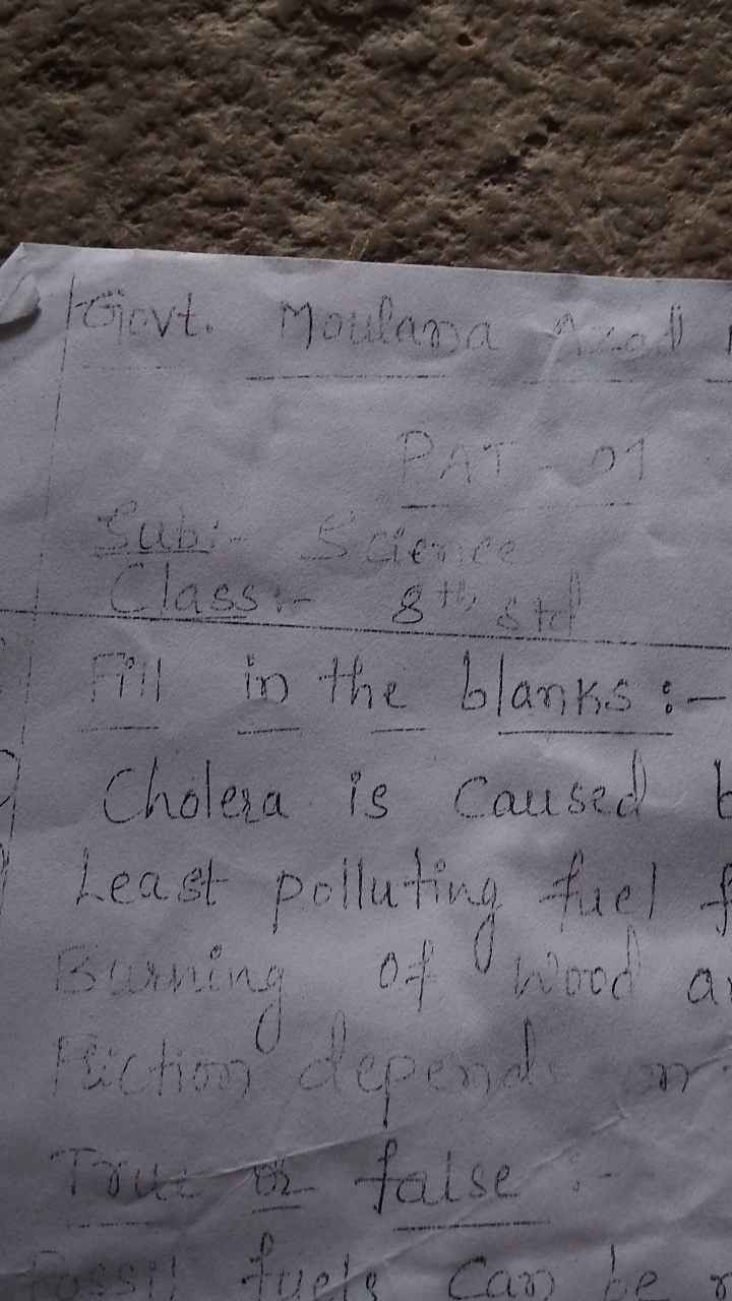 Govt. Moulana Azad
PAT - 01
Sub:- Science
Class:- 8th std
Fill in the blanks :-
Cholera is caused b
Least polluting fuel f
Burning of wood a
Friction depends
True or false :-
Fossil fuels can be